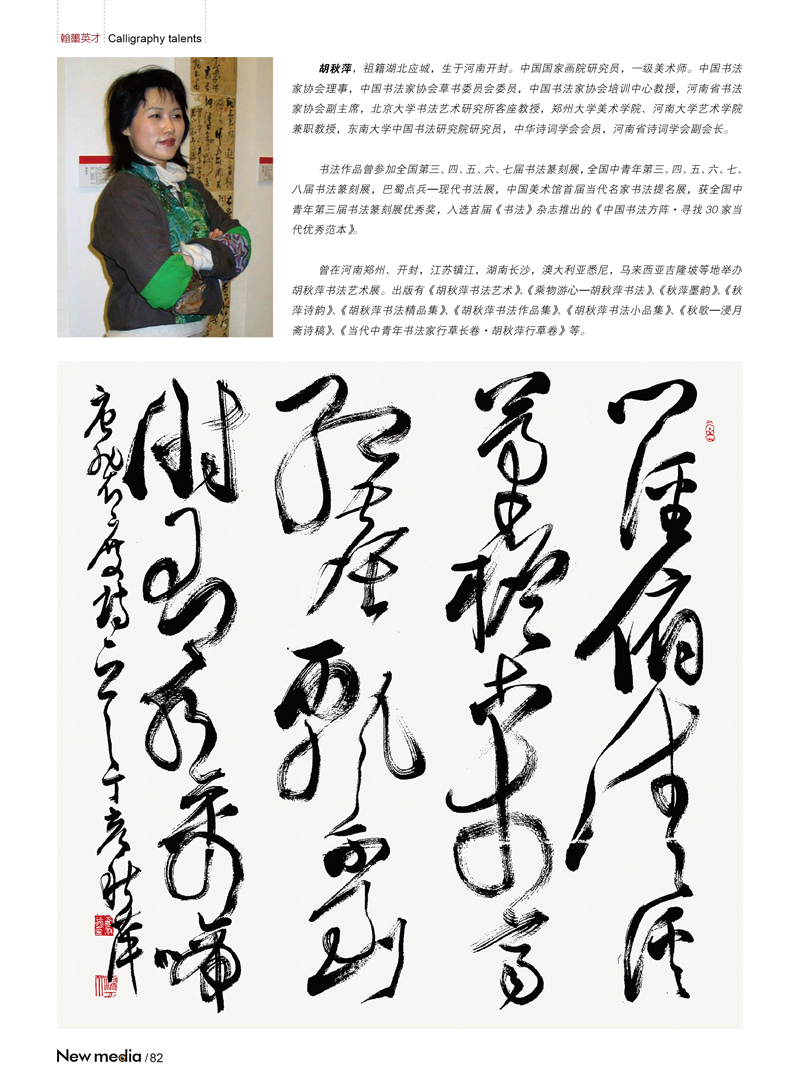 翰墨英才 Calligraphy talents
胡秋萍，祖籍湖北应城，生于河南开封。中国国家画院研究员，一级美术师。中国书法
家协会理事，中国书法家协会草书委员会委员，中国书法家协会培训中心教授，河南省书法
家协会副主席，北京大学书法艺术研究所客座教授，郑州大学美术学院、河南大学艺术学院
兼职教授，东南大学中国书法研究院研究员，中华诗词学会会员，河南省诗词学会副会长。
书法作品曾参加全国第三、四、五、六、七届书法篆刻展，全国中青年第三、四、五、六、七、
八届书法篆刻展，巴蜀点兵—现代书法展，中国美术馆首届当代名家书法提名展，获全国中
青年第三届书法篆刻展优秀奖，入选首届《书法》杂志推出的《中国书法方阵·寻找 30 家当
代优秀范本》。
曾在河南郑州、开封，江苏镇江，湖南长沙，澳大利亚悉尼，马来西亚吉隆坡等地举办
胡秋萍书法艺术展。出版有《胡秋萍书法艺术》、《乘物游心—胡秋萍书法》、《秋萍墨韵》、《秋
萍诗韵》、《胡秋萍书法精品集》、《胡秋萍书法作品集》、《胡秋萍书法小品集》、《秋歌—浸月
斋诗稿》、《当代中青年书法家行草长卷·胡秋萍行草卷》等。
門徑俯清溪
茅檐古木齊
紅塵飄不到
時有水禽啼
New media / 82